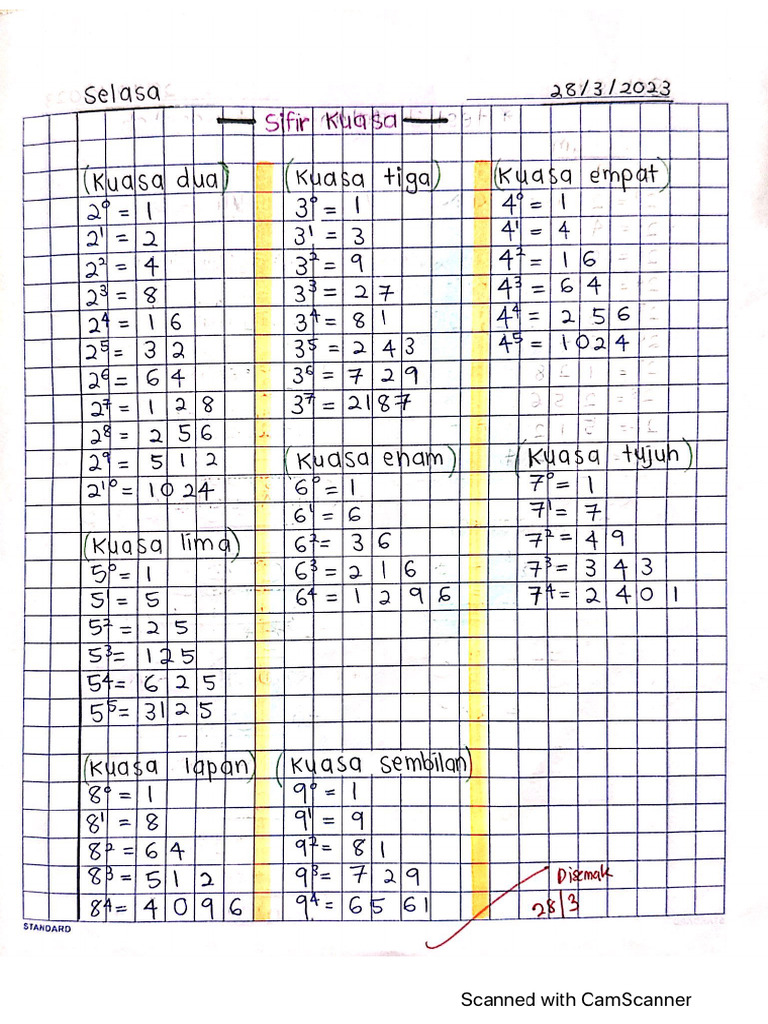 Selasa
28/3/2023
Sifir Kuasa
(Kuasa dua)
2⁰ = 1
2¹ = 2
2² = 4
2³ = 8
2⁴ = 16
2⁵ = 32
2⁶ = 64
2⁷ = 128
2⁸ = 256
2⁹ = 512
2¹⁰ = 1024
(Kuasa tiga)
3⁰ = 1
3¹ = 3
3² = 9
3³ = 27
3⁴ = 81
3⁵ = 243
3⁶ = 729
3⁷ = 2187
(Kuasa empat)
4⁰ = 1
4¹ = 4
4² = 16
4³ = 64
4⁴ = 256
4⁵ = 1024
(Kuasa lima)
5⁰ = 1
5¹ = 5
5² = 25
5³ = 125
5⁴ = 625
5⁵ = 3125
(Kuasa enam)
6⁰ = 1
6¹ = 6
6² = 36
6³ = 216
6⁴ = 1296
(Kuasa tujuh)
7⁰ = 1
7¹ = 7
7² = 49
7³ = 343
7⁴ = 2401
(Kuasa lapan)
8⁰ = 1
8¹ = 8
8² = 64
8³ = 512
8⁴ = 4096
(Kuasa sembilan)
9⁰ = 1
9¹ = 9
9² = 81
9³ = 729
9⁴ = 6561
Disemak
28/3
STANDARD
Scanned with CamScanner